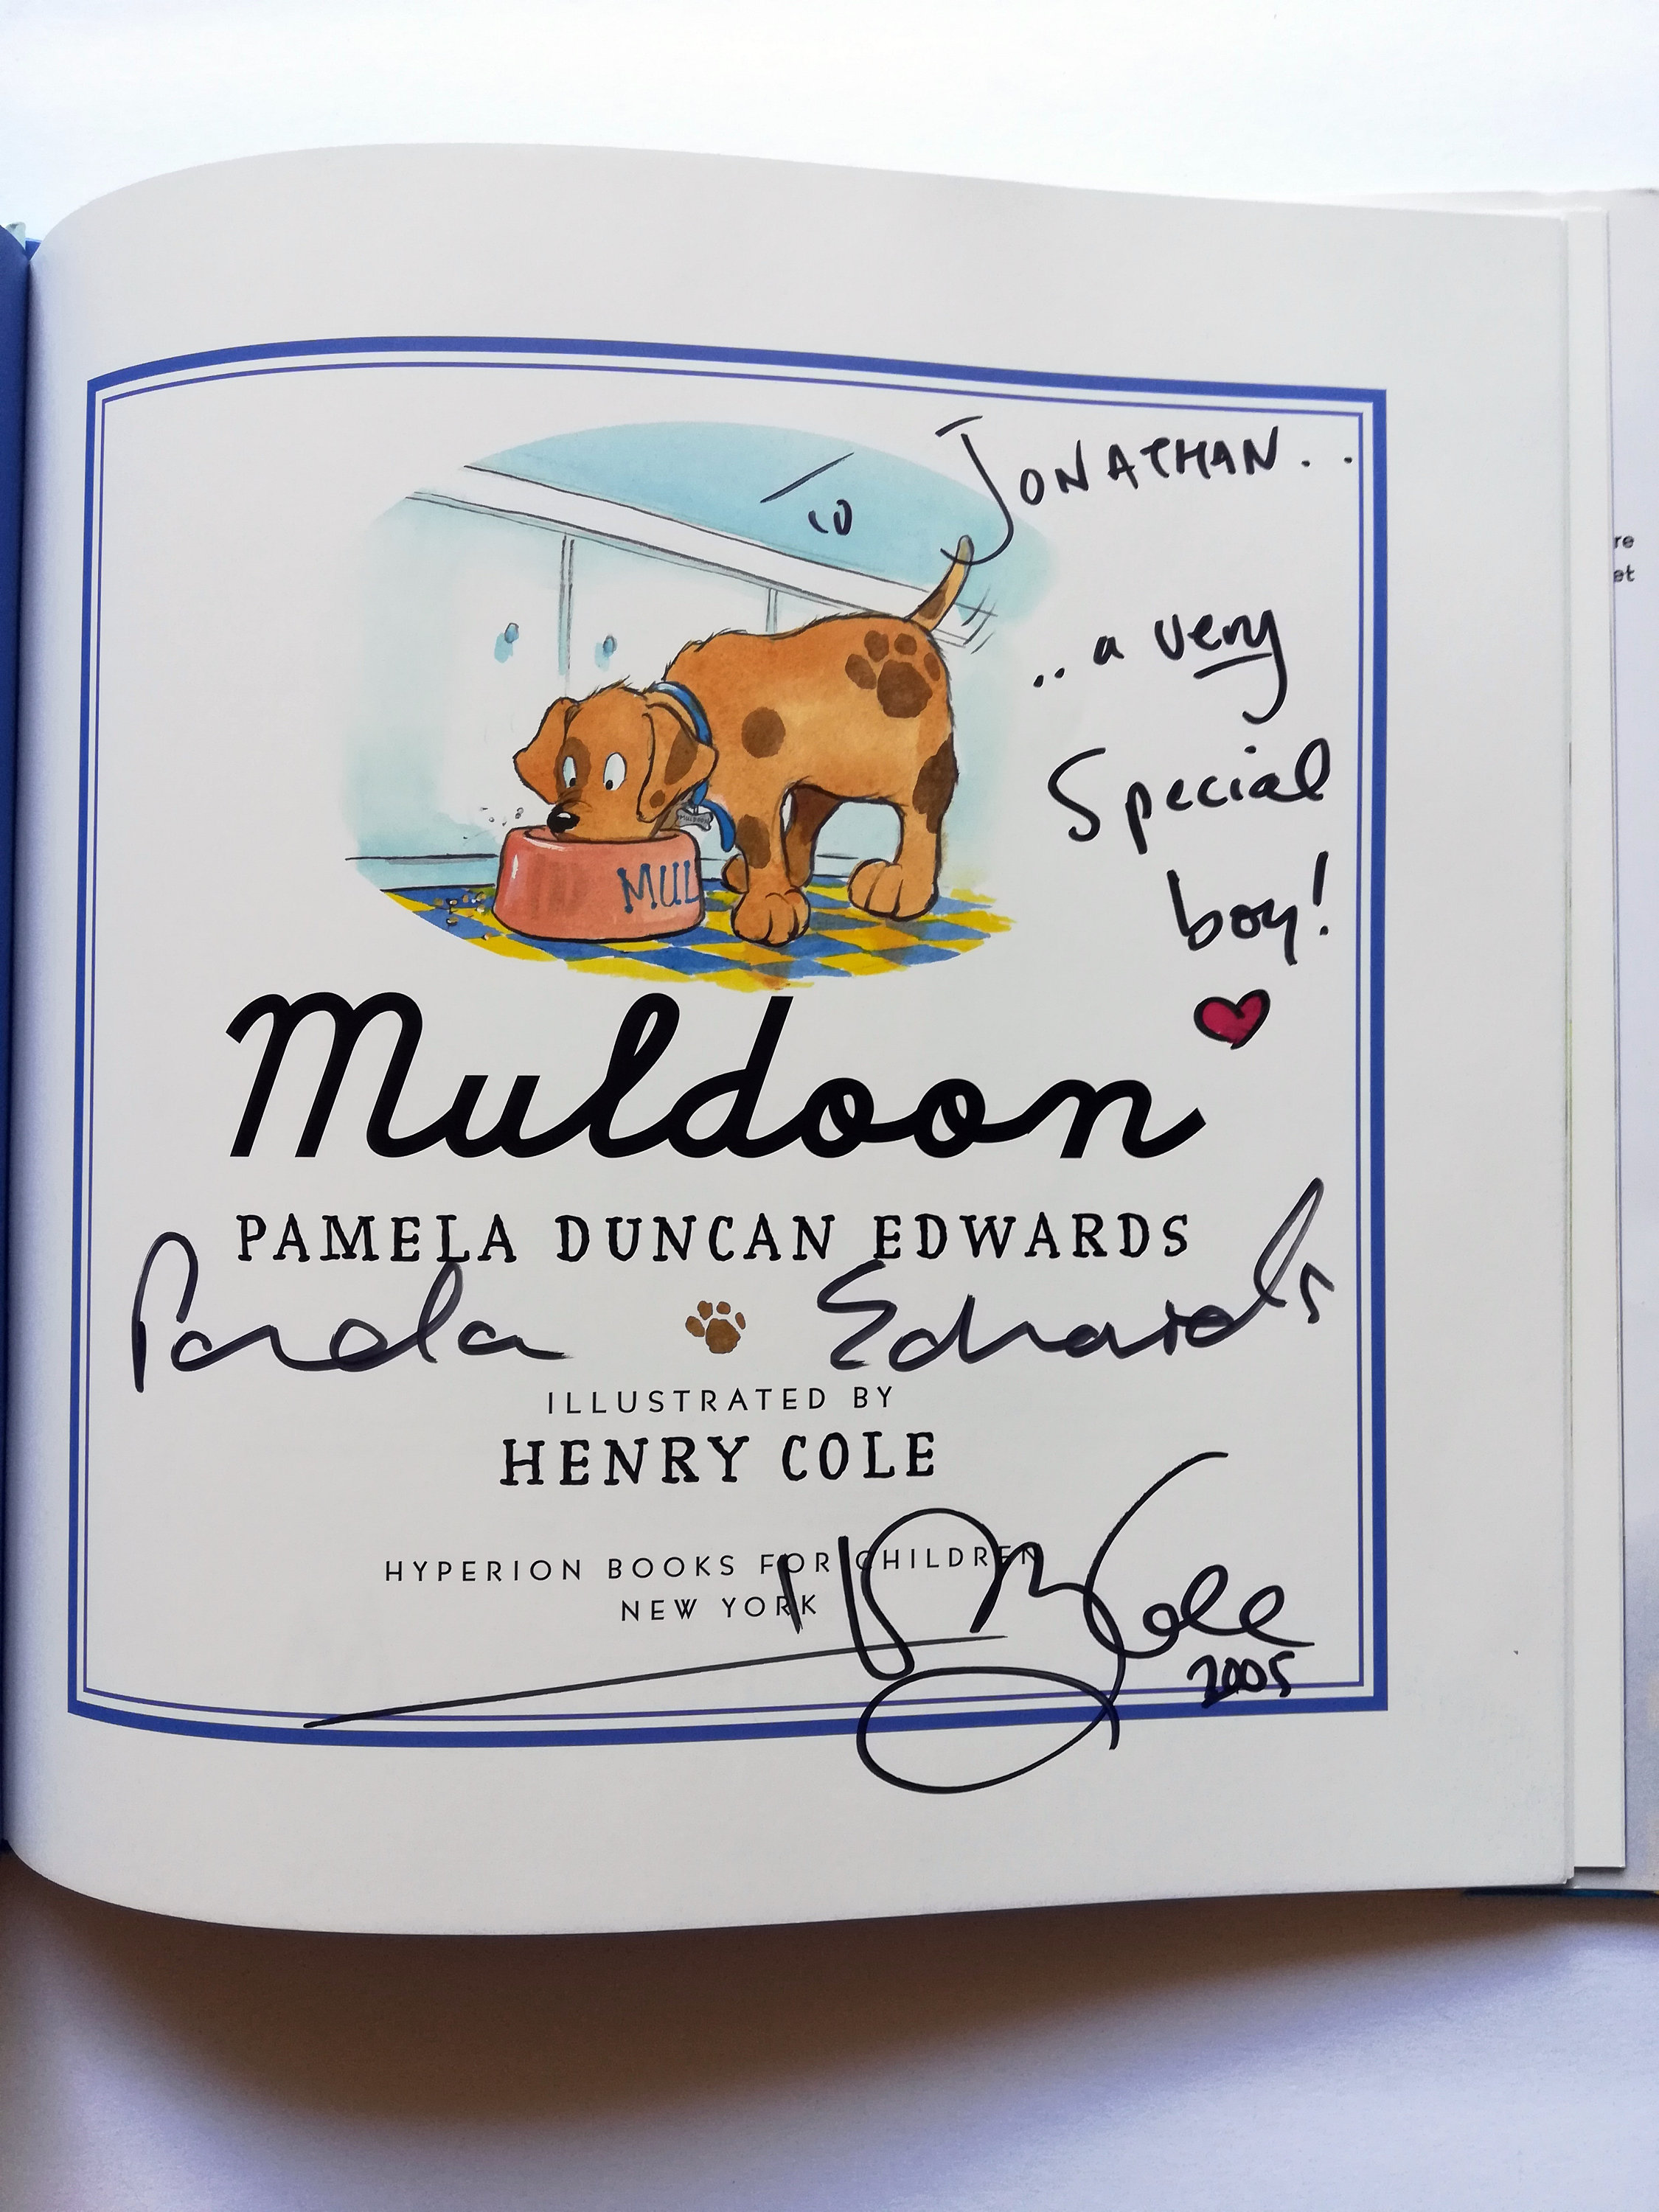 To JONATHAN..
..a very
Special
boy!
MULDOON
MUL
Muldoon
PAMELA DUNCAN EDWARDS
Pamela Edwards
ILLUSTRATED BY
HENRY COLE
HYPERION BOOKS FOR CHILDREN
NEW YORK
H Cole
2005
re
et